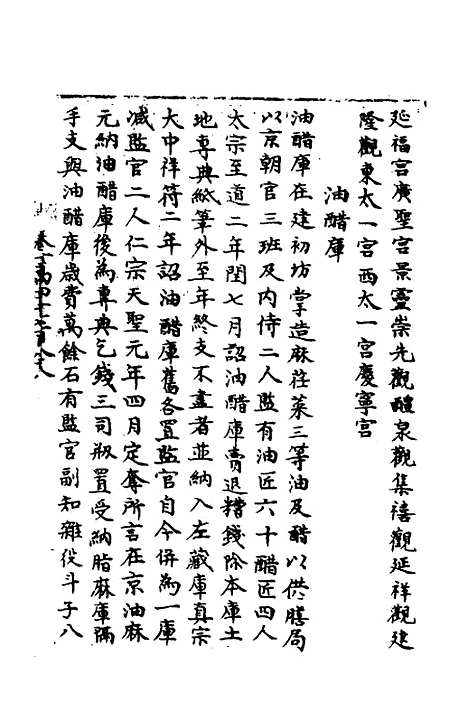 延福宫廣聖宫景靈崇先觀醴泉觀集禧觀延祥觀建
隆觀東太一宫西太一宫慶寧宫
油醋庫
油醋庫在建初坊掌造麻荏菜三等油及醋以供膳局
以京朝官三班及内侍二人監有油匠六十醋匠四人
太宗至道二年閏七月詔油醋庫賣退糟錢除本庫土
地專典紙筆外至年終支不盡者並納入左藏庫真宗
大中祥符二年詔油醋庫舊各置監官自今併為一庫
减監官二人仁宗天聖元年四月定奪所言在京油麻
元納油醋庫後為專典乞錢三司剏置受納脂麻庫隔
手支與油醋庫歲費萬餘石有監官副知雜役斗子八
卷一萬四千七百八十八